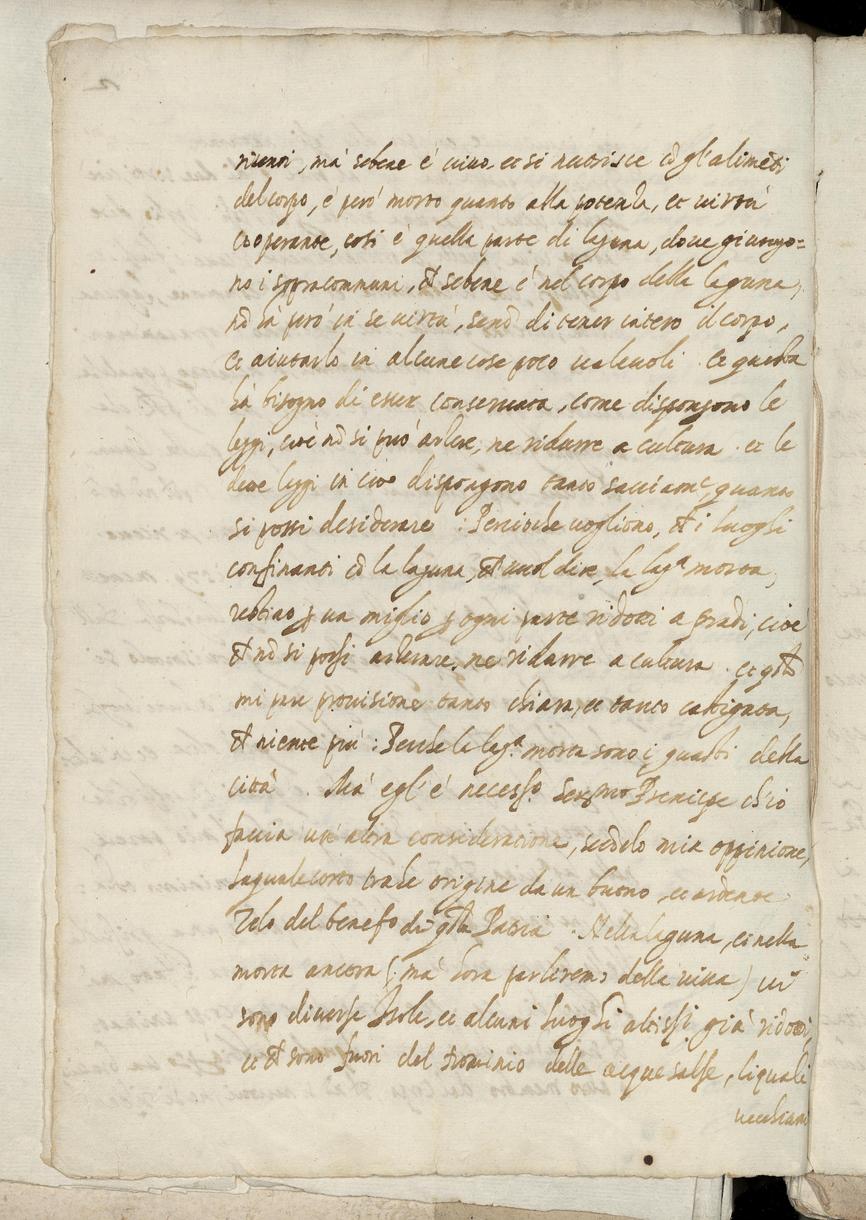 ma' sebene é uiuo et si nutrisce cõ gl'alimẽti
del corpo, é però morto quanto alla potenza, et uirtù
cooperante, così é quella parte di laguna, doue giungo=
no i sopracomuni, et sebene é nel corpo della laguna,
nõ hà però in se uirtù, senõ di tener intero il corpo,
et aiutarlo in alcune cose poco ualeuoli. et questa
hà bisogno di esser conseruata, come dispongono le
leggi, cioè nõ si può ne ridurre a coltura. et le
dette leggi in ciò dispongono tanto quanto
si possi desiderare: Perciochè uogliono, ch i luoghi
confinanti cõ la laguna, ch uuol dire, la lagª morta,
p un miglio p ogni parte ridotti a pradi, cioè
ch nõ si possi ne ridurre a coltura. et qsta
mi pare prouisione tanto chiara, et tanto castigata,
ch niente più: Perchè la lagª morta sono i della
città. Ma' egl'é necessº Sermo Prencipe ch'io
faccia un'altra consideratione, secõdo mia oppinione,
laquale certo trahe origine da un buono, et ardente
Zelo del benefº di qsta Patria. Nella laguna, et nella
morta ancora (ma' hora parleremo della uiua) ui
sono diuerse Isole, et alcuni luoghi altissi già ridotti,
et ch sono fuori del Dominio delle acque salse, li quali